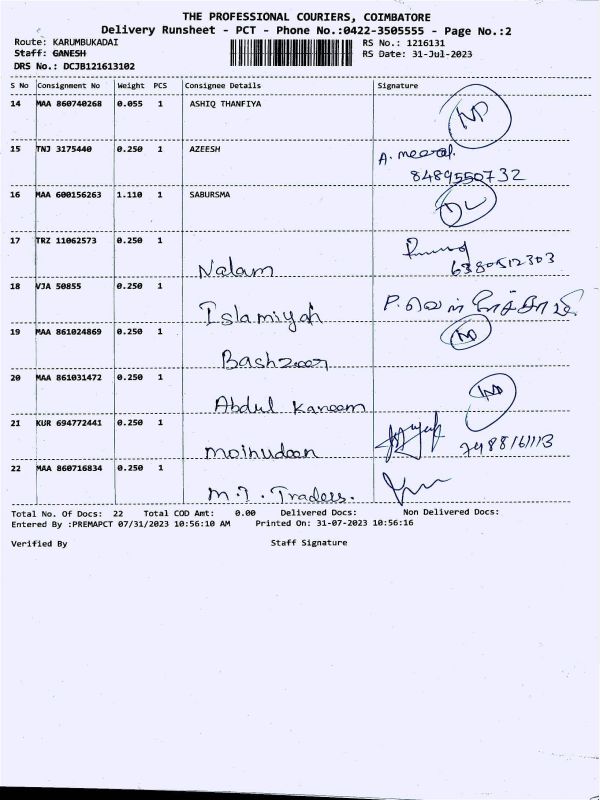 THE PROFESSIONAL COURIERS, COIMBATORE
Delivery Runsheet - PCT - Phone No.:0422-3505555 - Page No.:2
Route: KARUMBUKADAI RS No.: 1216131
Staff: GANESH RS Date: 31-Jul-2023
DRS No.: DCJB121613102
S No Consignment No Weight PCS Consignee Details Signature
14 MAA 860740268 0.055 1 ASHIQ THANFIYA ND
15 TNJ 3175440 0.250 1 AZEESH A. meeral.
8489550732
16 MAA 600156263 1.110 1 SABURSMA DL
17 TRZ 11062573 0.250 1
Nalam 6380512303
18 VJA 50855 0.250 1
Islamiyah
19 MAA 861024869 0.250 1 ND
20 MAA 861031472 0.250 1 ND
Abdul Kareem
21 KUR 694772441 0.250 1
Moihudeen
22 MAA 860716834 0.250 1
M.I. Traders.
Total No. Of Docs: 22 Total COD Amt: 0.00 Delivered Docs: Non Delivered Docs:
Entered By :PREMAPCT 07/31/2023 10:56:10 AM Printed On: 31-07-2023 10:56:16
Verified By Staff Signature